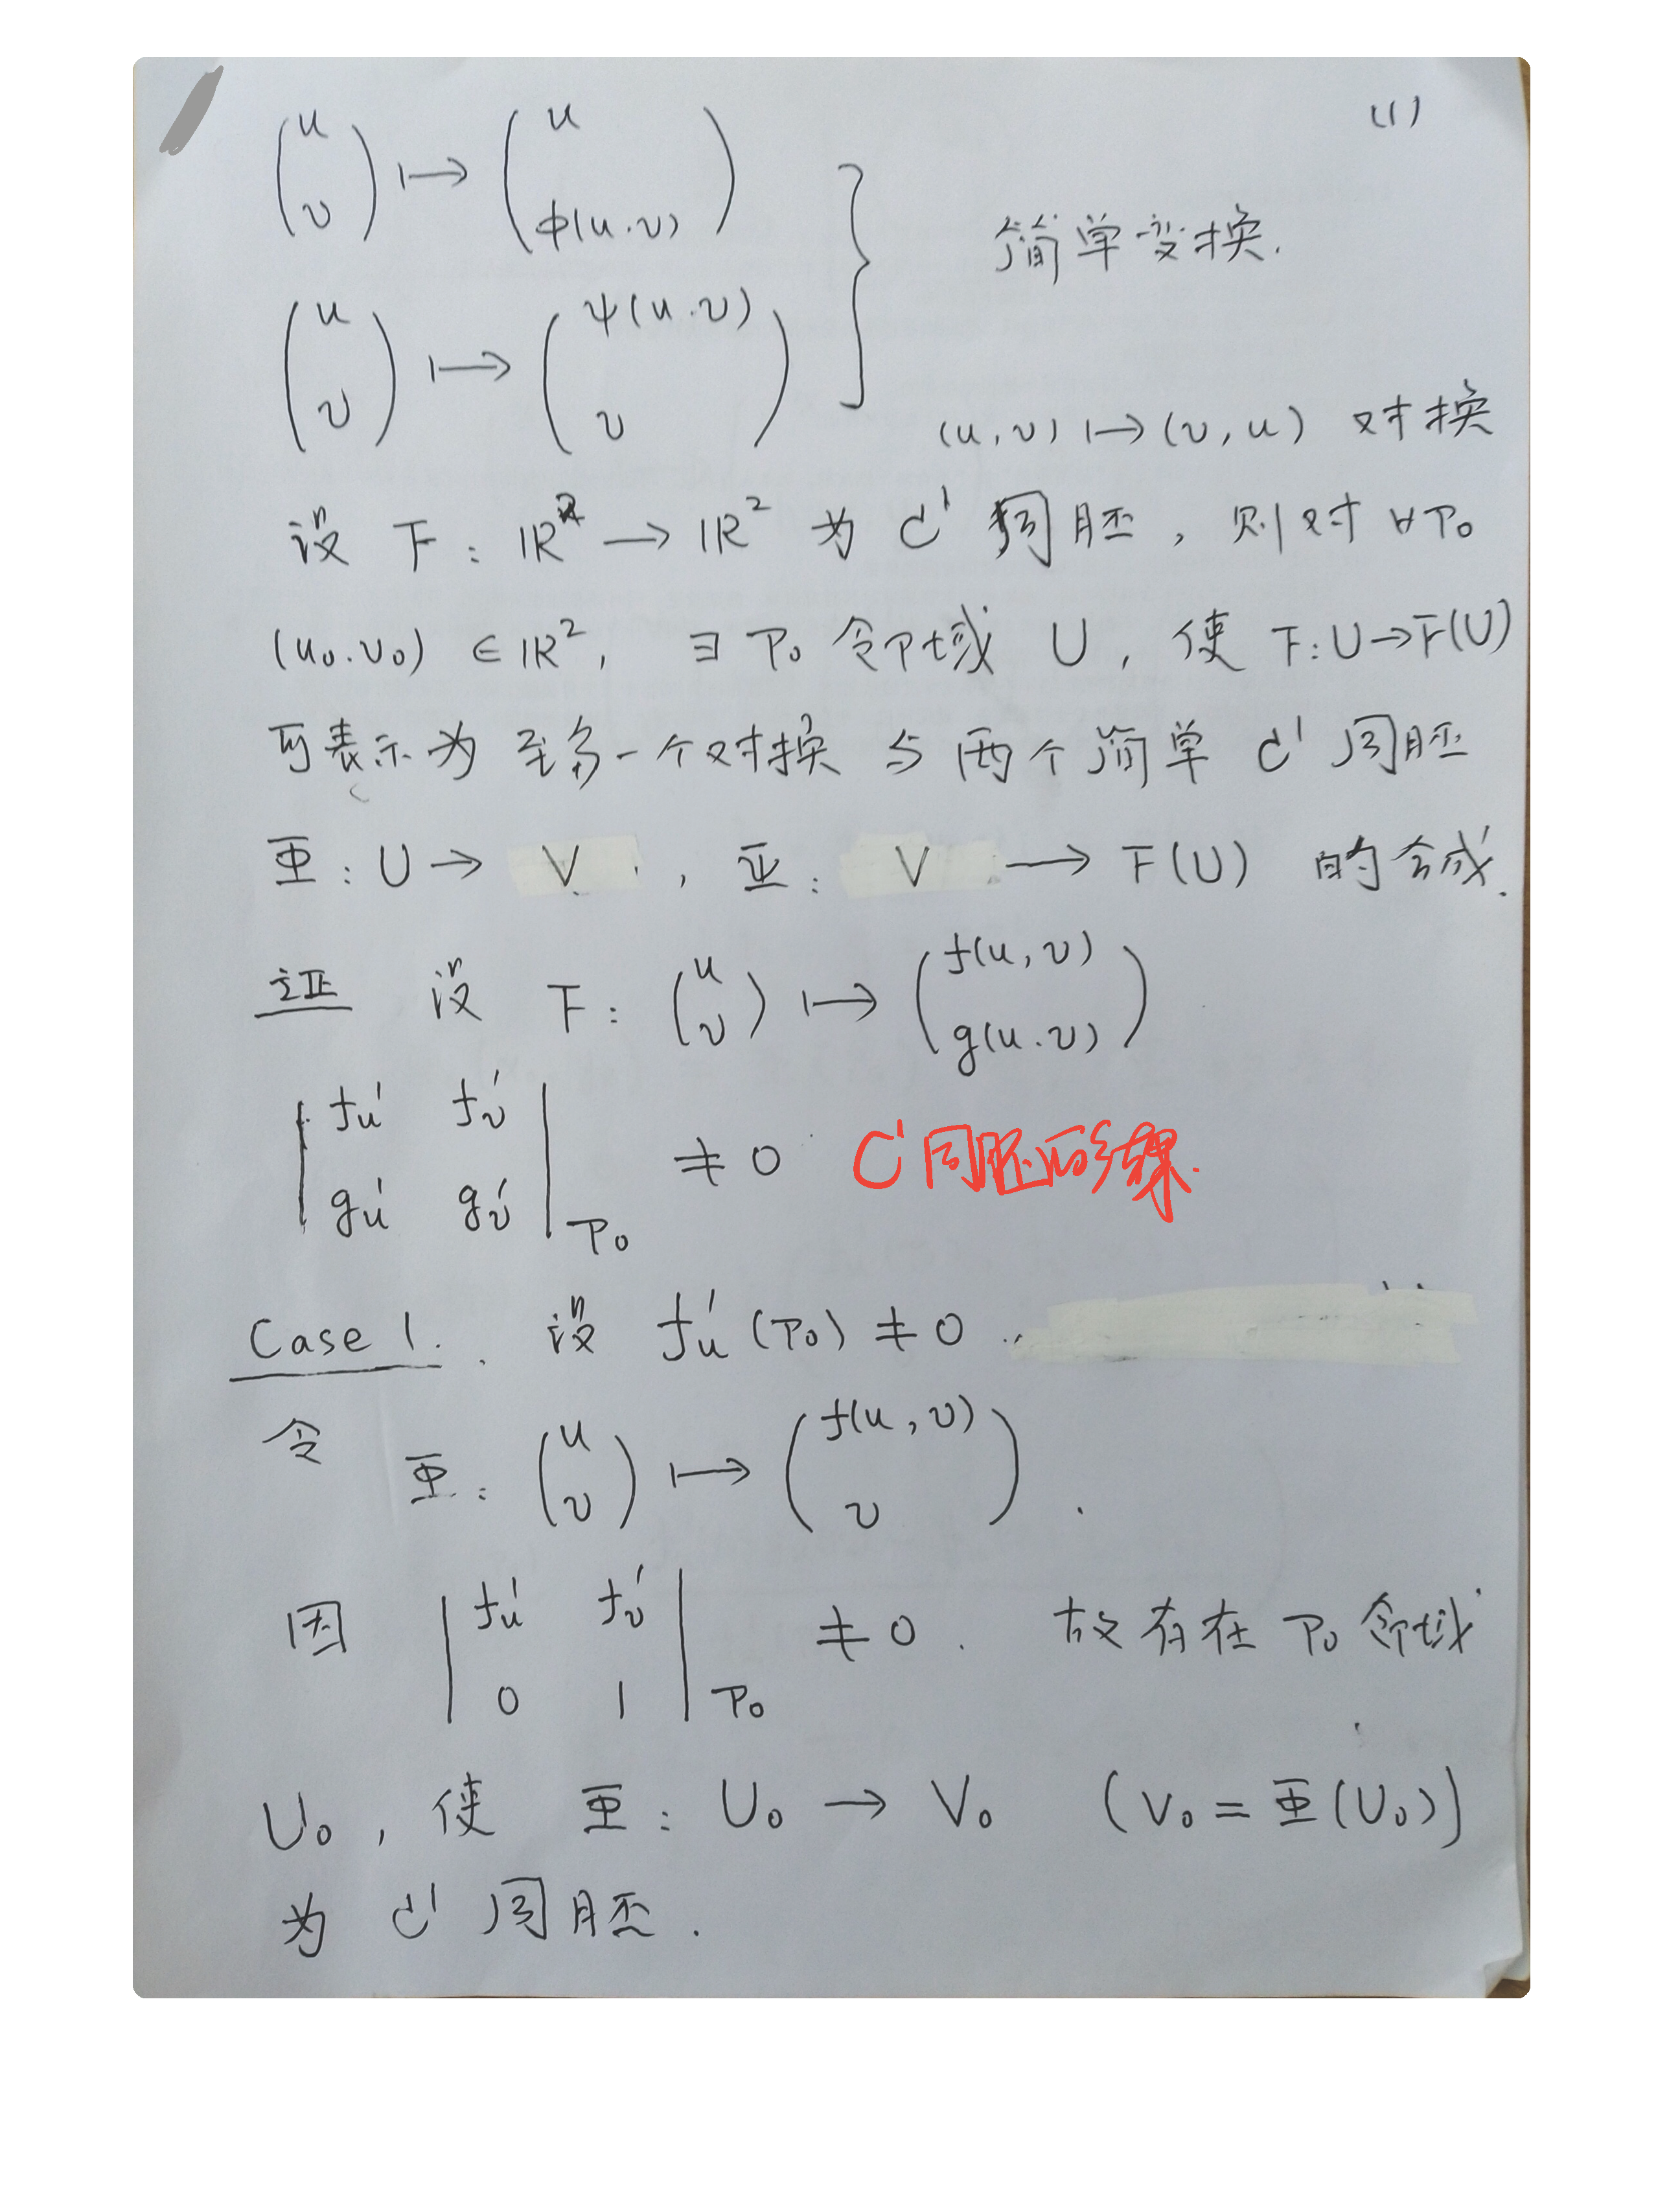 (1)
(u v) ↦ (u φ(u.v))
(u v) ↦ (ψ(u.v) v)
} 简单变换.
(u,v) ↦ (v,u) 对换
设 F: ℝ² → ℝ² 为 C¹ 同胚, 则对 ∀P₀
(u₀.v₀) ∈ ℝ², ∃ P₀ 邻域 U, 使 F:U→F(U)
可表示为 至多一个对换 与 两个简单 C¹ 同胚
Φ: U → V, Ψ: V → F(U) 的合成.
证 设 F: (u v) ↦ (f(u,v) g(u.v))
| f'u f'v |
| g'u g'v |P₀ ≠ 0 C¹同胚的结果.
Case 1. 设 f'u (P₀) ≠ 0.
令 Φ: (u v) ↦ (f(u,v) v).
因 | f'u f'v |
| 0 1 |P₀ ≠ 0. 故存在 P₀ 邻域
U₀, 使 Φ: U₀ → V₀ (V₀ = Φ(U₀))
为 C¹ 同胚.